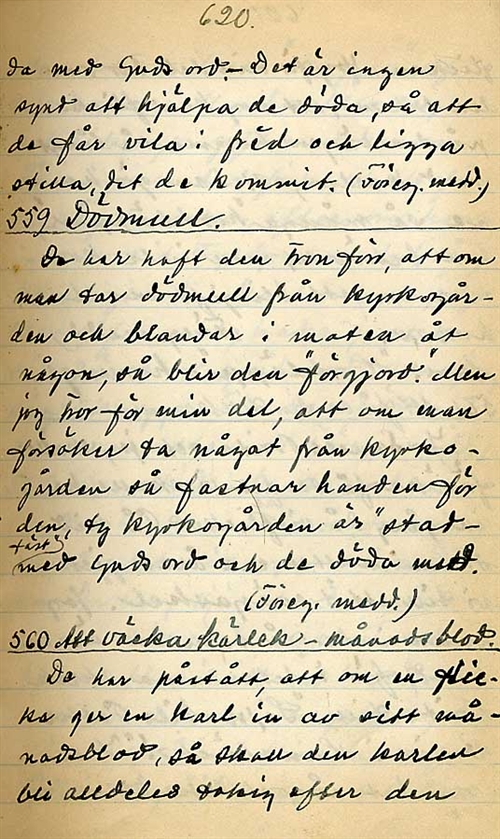 620.
da med Guds ord. – Det är ingen
synd att hjälpa de döda, så att
de får vila i frid och ligga
stilla, dit de kommit. (Föreg. medd.)
559 Dödmull.
De har haft den tron förr, att om
man tar dödmull från kyrkogår-
den och blandar i maten åt
någon, så blir den "förgjord." Men
jag tror för min del, att om man
försöker ta något från kyrko-
gården så fastnar handen för
den, ty kyrkogården är "stad-
fäst"
med Guds ord och de döda med.
(Föreg. medd.)
560 Att väcka kärlek – månadsblod.
De har påstått, att om en flic-
ka ger en karl in av sitt må-
nadsblod, så skall den karlen
bli alldeles tokig efter den